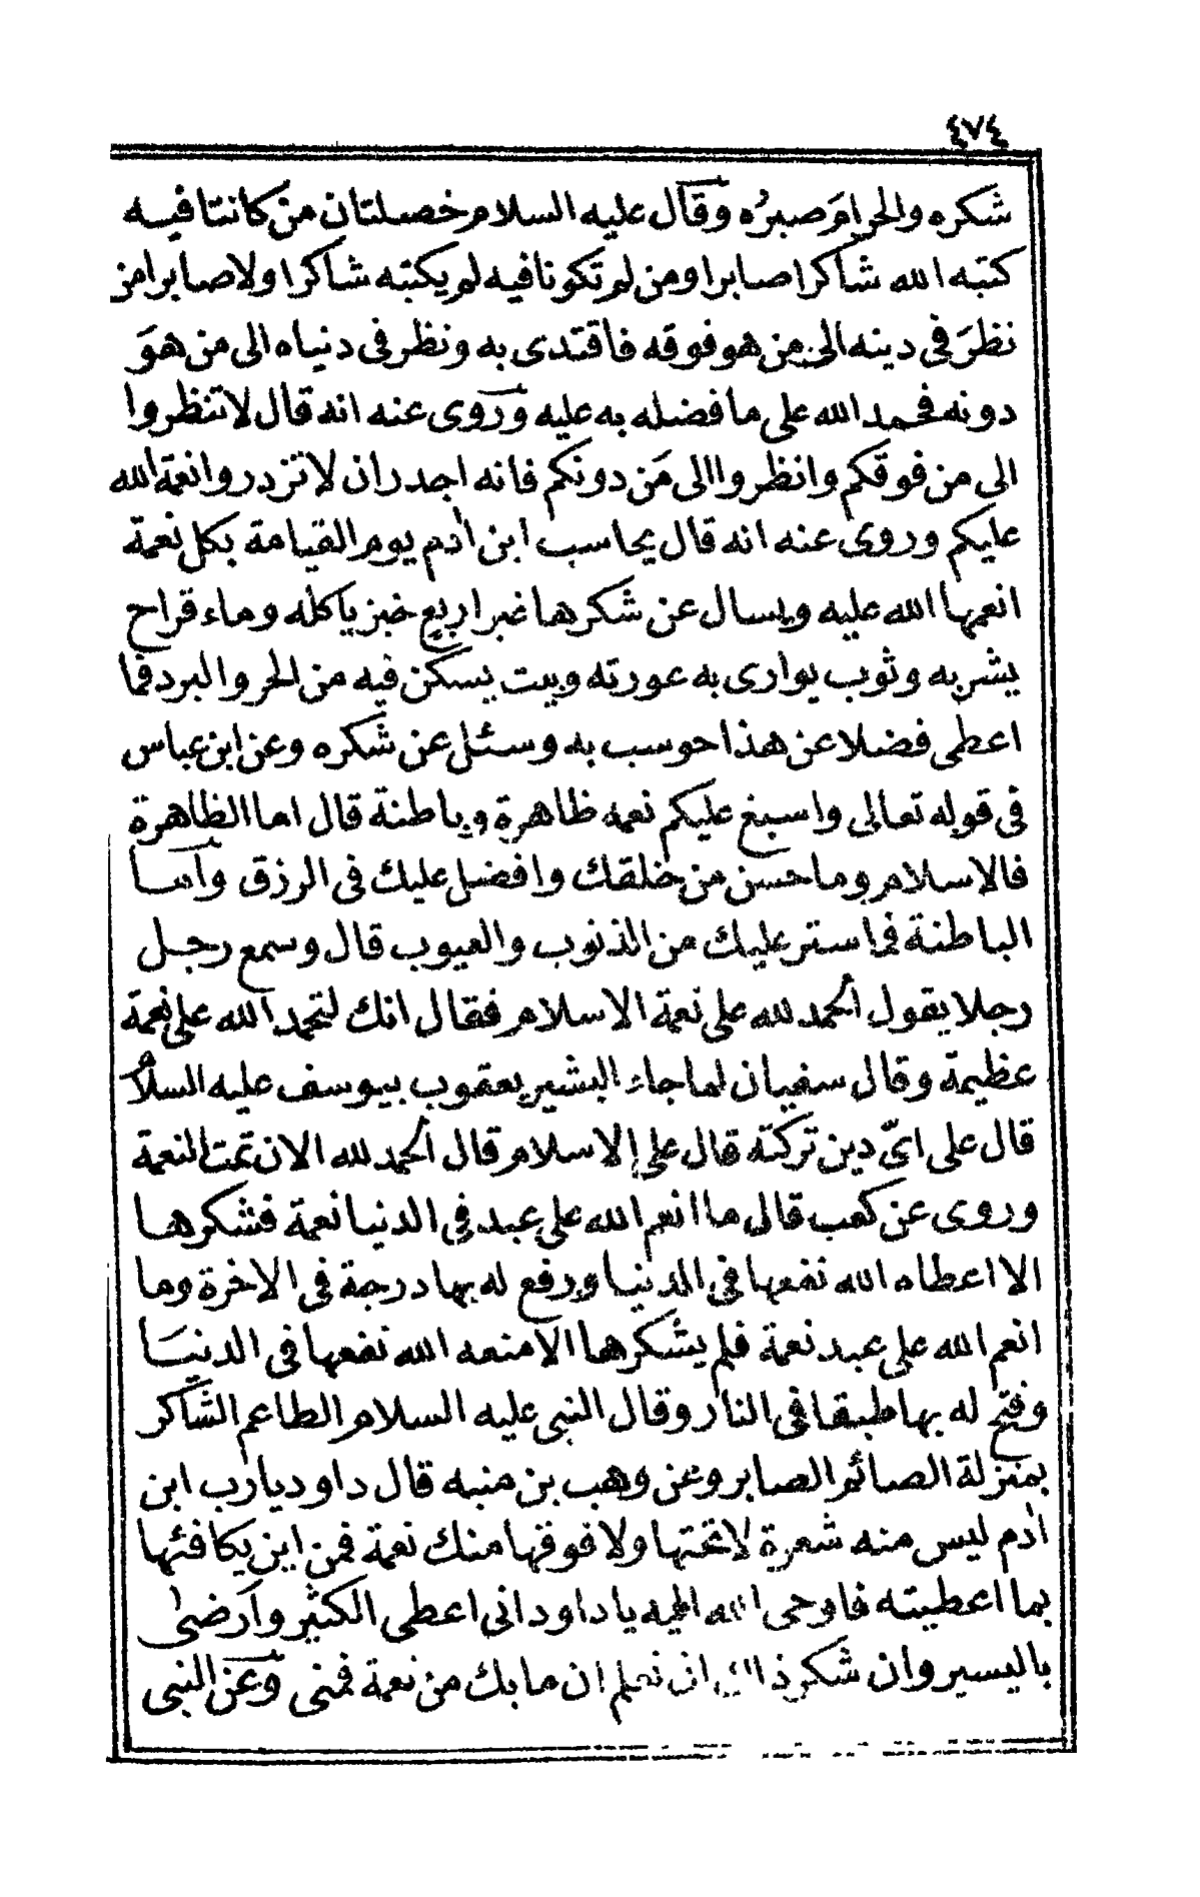 ٤٧٤
شكره والحرام صبره وقال عليه السلام خصلتان من كانتا فيه
كتبه الله شاكرا صابرا ومن لم تكونا فيه لم يكتبه شاكرا ولا صابرا من
نظر في دينه الى من هو فوقه فاقتدى به ونظر في دنياه الى من هو
دونه فحمد الله على ما فضله به عليه وروى عنه انه قال لا تنظروا
الى من فوقكم وانظروا الى من دونكم فانه اجدر ان لا تزدروا نعمة الله
عليكم وروى عنه انه قال يحاسب ابن ادم يوم القيامة بكل نعمة
انعمها الله عليه ويسال عن شكرها غير اربع خبز ياكله وماء قراح
يشربه وثوب يوارى به عورته وبيت يسكن فيه من الحر والبرد فما
اعطى فضلا عن هذا حوسب به وسئل عن شكره وعن ابن عباس
في قوله تعالى واسبغ عليكم نعمه ظاهرة وباطنة قال اما الظاهرة
فالاسلام وما حسن من خلقك وافضل عليك في الرزق واما
الباطنة فما ستر عليك من الذنوب والعيوب قال وسمع رجل
رجلا يقول الحمد لله على نعمة الاسلام فقال انك لتحمد الله على نعمة
عظيمة وقال سفيان لما جاء البشير يعقوب بيوسف عليه السلام
قال على اىّ دين تركته قال على الاسلام قال الحمد لله الان تمت النعمة
وروى عن كعب قال ما انعم الله على عبد في الدنيا نعمة فشكرها
الا اعطاه الله نفعها في الدنيا ورفع له بها درجة في الاخرة وما
انعم الله على عبد نعمة فلم يشكرها الا منعه الله نفعها في الدنيا
وفتح له بها طبقا في النار وقال النبى عليه السلام الطاعم الشاكر
بمنزلة الصائم الصابر وعن وهب بن منبه قال داود يارب ابن
ادم ليس منه شعرة لا تحتها ولا فوقها منك نعمة فمن اين يكافئها
بما اعطيته فاوحى الله اليه يا داود انى اعطى الكثير وارضى
باليسير وان شكر ذلك ان تعلم ان ما بك من نعمة فمنى وعن النبى